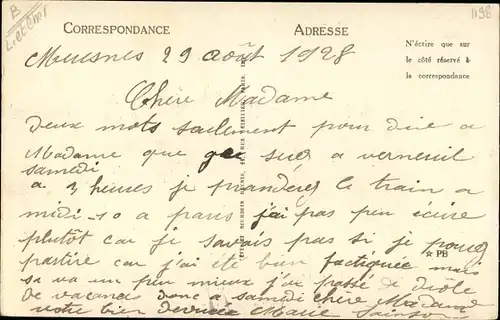 B
1198
CORRESPONDANCE
ADRESSE
N'écrire que sur
le côté réservé à
la correspondance
Meusnes 29 août 1928
Chère Madame
deux mots sailement pour dire a
Madame que je suis a verneuil
samedi
a 3 heures je pranderez le train a
midi-10 a paris j'ai pas peu écrire
plutôt car je savais pas si je pouvez
partire car j'ai été bien factiquée mais
☆ PB
sa va un peu mieux j'ai passé de drole
de vacances donc a samedi chère Madame
votre bien devouée Marie